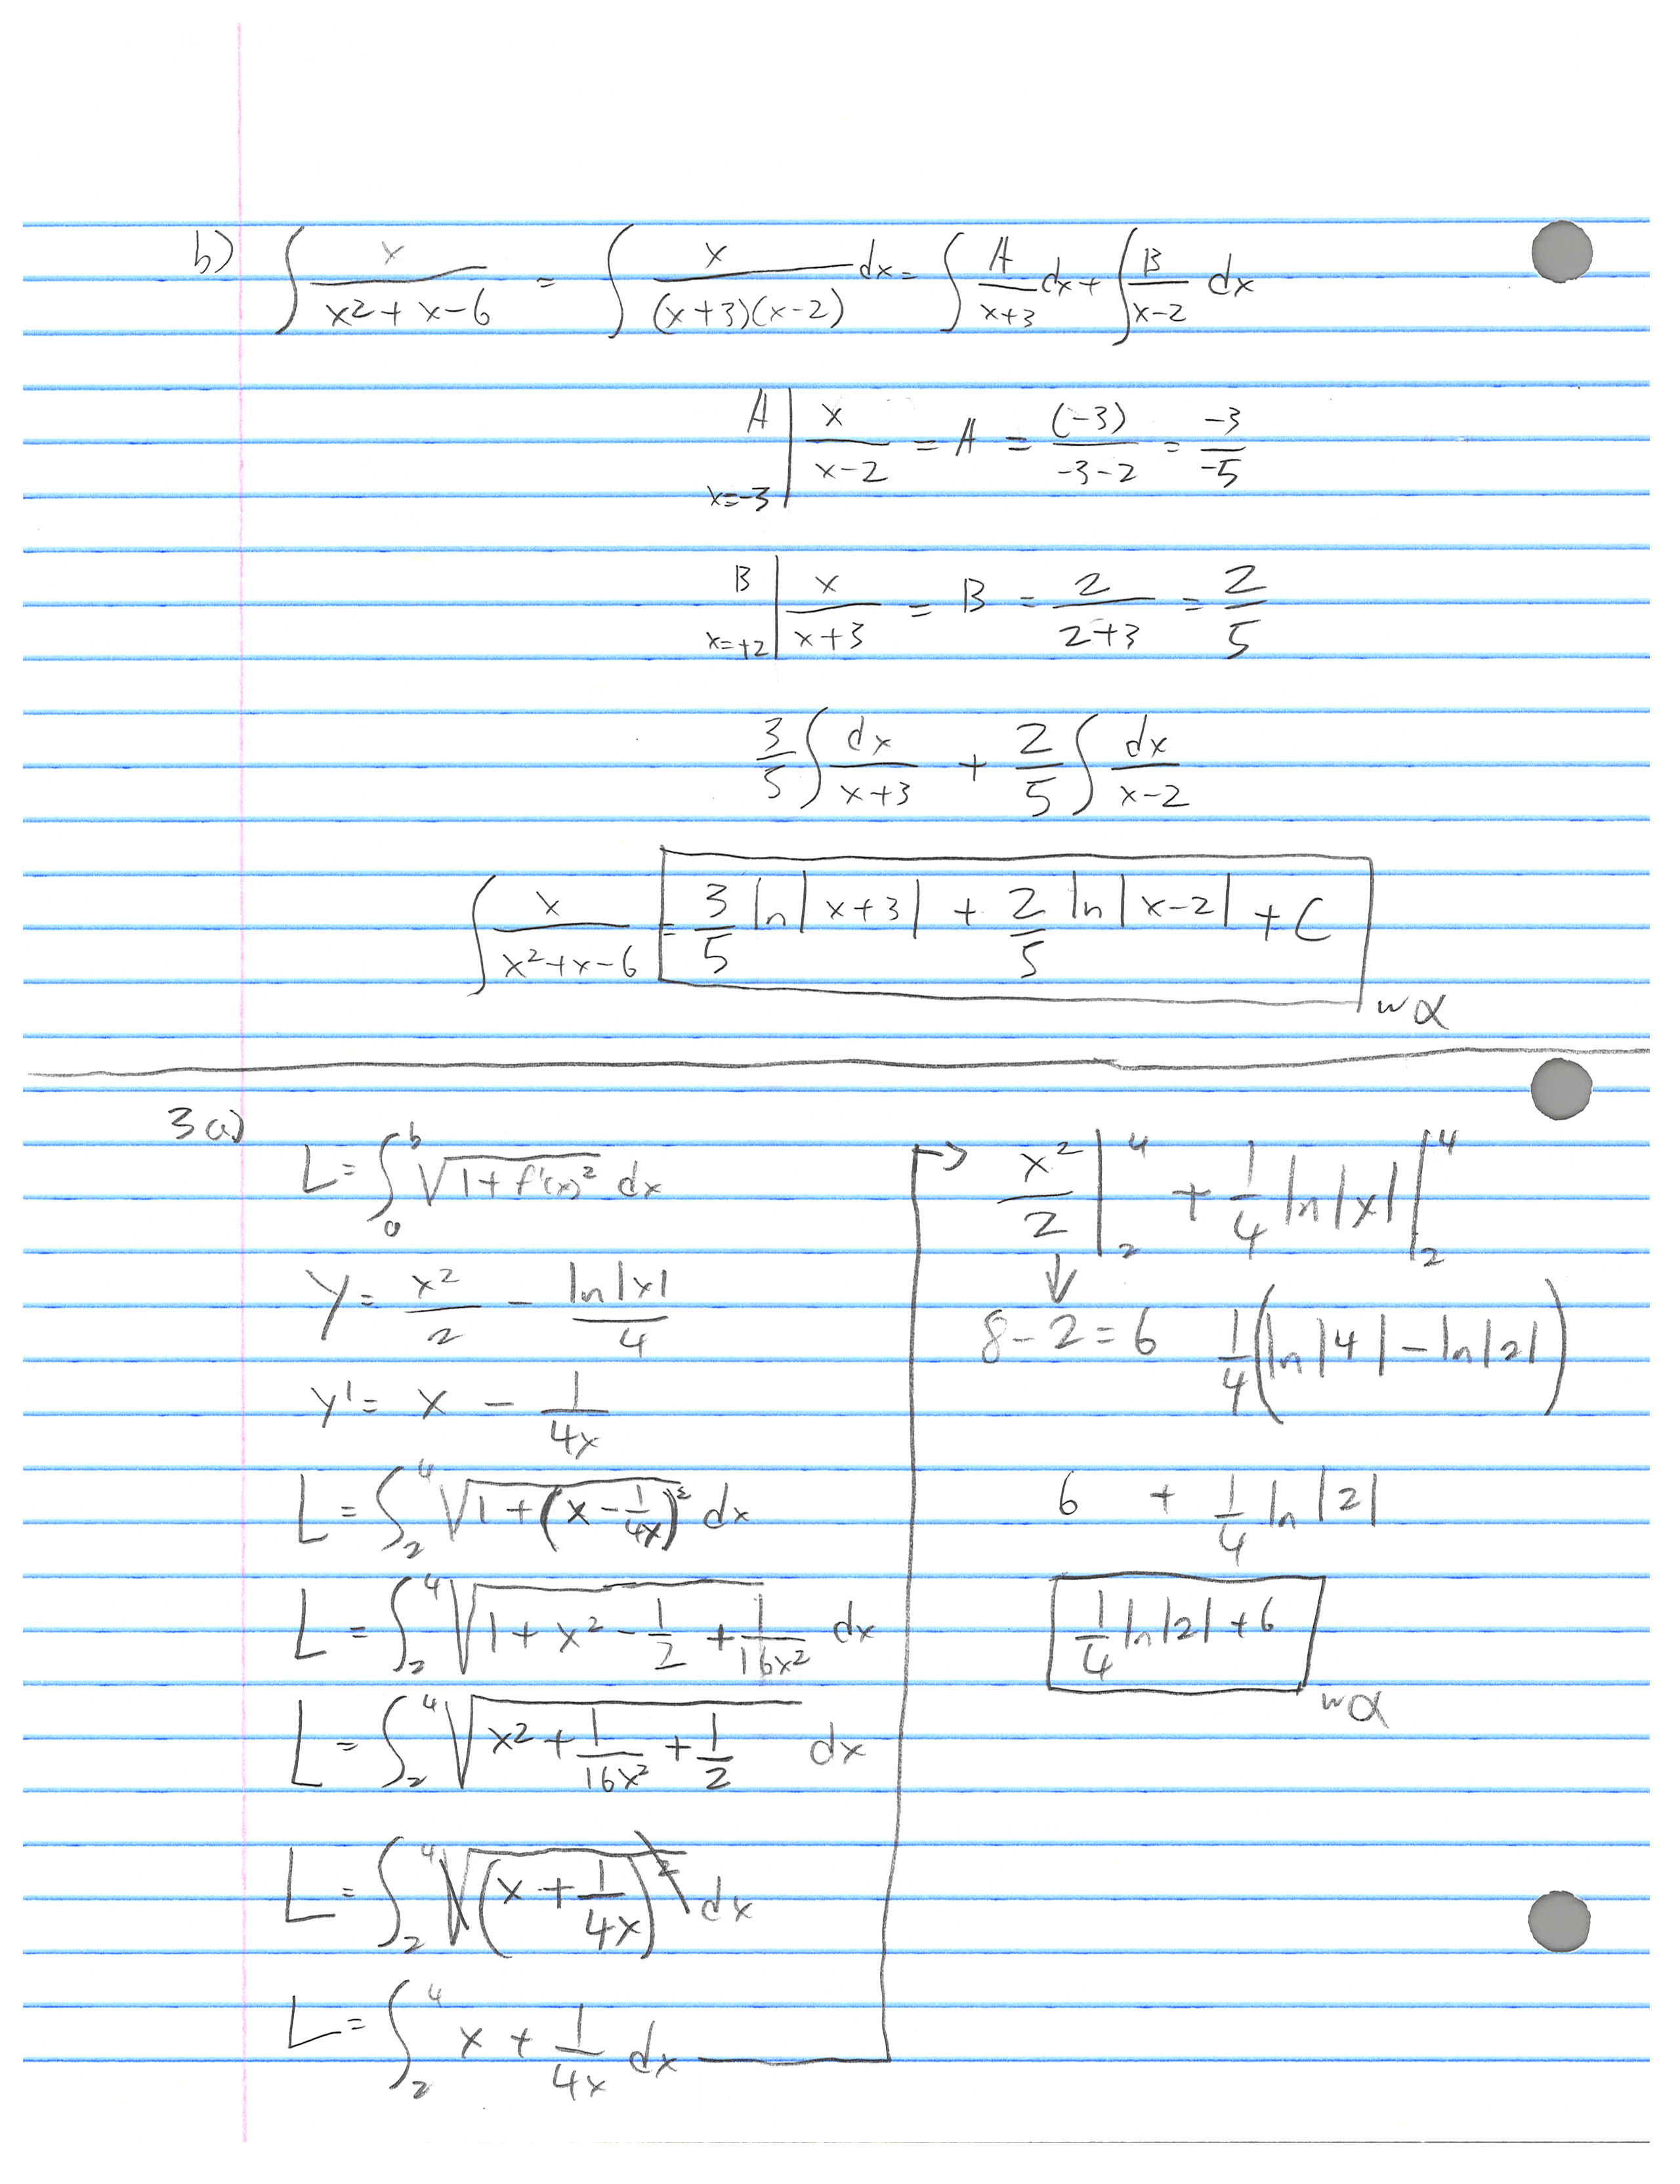 b) ∫ x/(x²+x-6) = ∫ x/((x+3)(x-2)) dx = ∫ A/(x+3) dx + ∫ B/(x-2) dx
A | x=-3 x/(x-2) = A = (-3)/(-3-2) = -3/-5
B | x=+2 x/(x+3) = B = 2/(2+3) = 2/5
3/5 ∫ dx/(x+3) + 2/5 ∫ dx/(x-2)
∫ x/(x²+x-6) = 3/5 ln|x+3| + 2/5 ln|x-2| + C
wα
3a)
L = ∫_a^b √(1+f'(x)²) dx
y = x²/2 - ln|x|/4
y' = x - 1/(4x)
L = ∫_2^4 √(1+(x-1/(4x))²) dx
L = ∫_2^4 √(1+x²-1/2+1/(16x²)) dx
L = ∫_2^4 √(x²+1/(16x²)+1/2) dx
L = ∫_2^4 √((x+1/(4x))²) dx
L = ∫_2^4 x + 1/(4x) dx
→ x²/2 |_2^4 + 1/4 ln|x| |_2^4
↓
8-2=6 1/4(ln|4|-ln|2|)
6 + 1/4 ln|2|
1/4 ln|2| + 6
wα